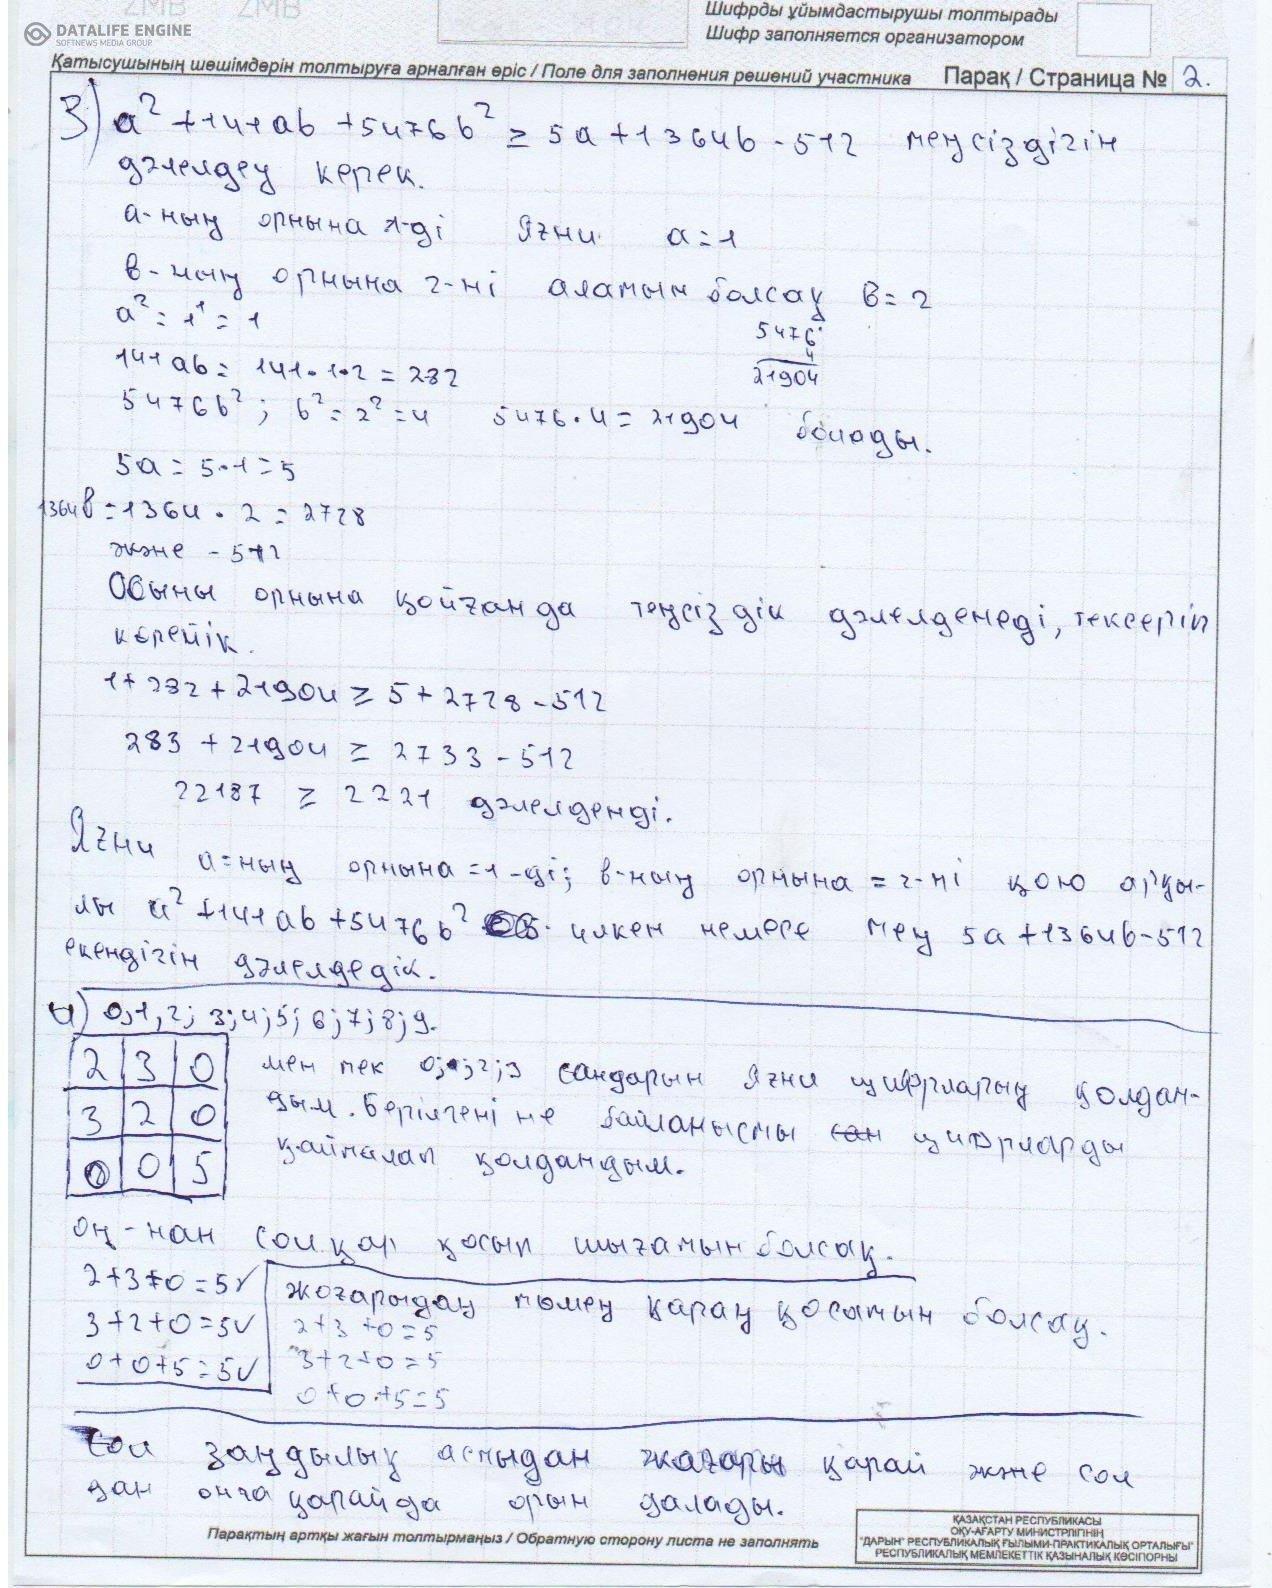 ZMB ZMB
DATALIFE ENGINE
SOFTNEWS MEDIA GROUP
Шифрды ұйымдастырушы толтырады
Шифр заполняется организатором
Қатысушының шешімдерін толтыруға арналған өріс / Поле для заполнения решений участника Парақ / Страница № 2.
3) a² +141ab +5476b² ≥ 5a +1364b - 512 теңсіздігін
дәлелдеу керек.
а-ның орнына 1-ді Яғни a=1
в-ның орнына 2-ні алатын болсақ в=2
a² = 1¹ = 1
5476
4
21904
141ab = 141·1·2 = 282
5476b²; b² = 2² = 4 5476·4 = 21904 болады.
5a = 5·1 = 5
1364в = 1364 · 2 = 2728
және - 512
Осыны орнына қойғанда теңсіздік дәлелденеді, тексеріп
көрейік.
1+282+21904 ≥ 5+2728-512
283 +21904 ≥ 2733-512
22187 ≥ 2221 дәлелденді.
Яғни а=ның орнына =1-ді; в-ның орнына =2-ні қою арқы-
лы a² +141ab +5476b² үлкен немесе тең 5a +1364b-512
екендігін дәлелдедік.
4) 0;1;2; 3;4;5; 6;7;8;9.
2 3 0
3 2 0
0 0 5
мен тек 0;1;2;3 сандарын Яғни цифрларын қолдан-
дым. Берілгеніне байланысты сан цифрларды
қайталап қолдандым.
оң-нан солқар қосып шығатын болсақ.
2+3+0=5✓
3+2+0=5✓
0+0+5=5✓
жоғарыдан төмен қарай қосатын болсақ.
2+3+0=5
3+2+0=5
0+0+5=5
Сол заңдылық астыдан жағары қарай және сол
дан онға қарайда орын далады.
Парақтың артқы жағын толтырмаңыз / Обратную сторону листа не заполнять
ҚАЗАҚСТАН РЕСПУБЛИКАСЫ
ОҚУ-АҒАРТУ МИНИСТРЛІГІНІҢ
"ДАРЫН" РЕСПУБЛИКАЛЫҚ ҒЫЛЫМИ-ПРАКТИКАЛЫҚ ОРТАЛЫҒЫ"
РЕСПУБЛИКАЛЫҚ МЕМЛЕКЕТТІК ҚАЗЫНАЛЫҚ КӘСІПОРНЫ